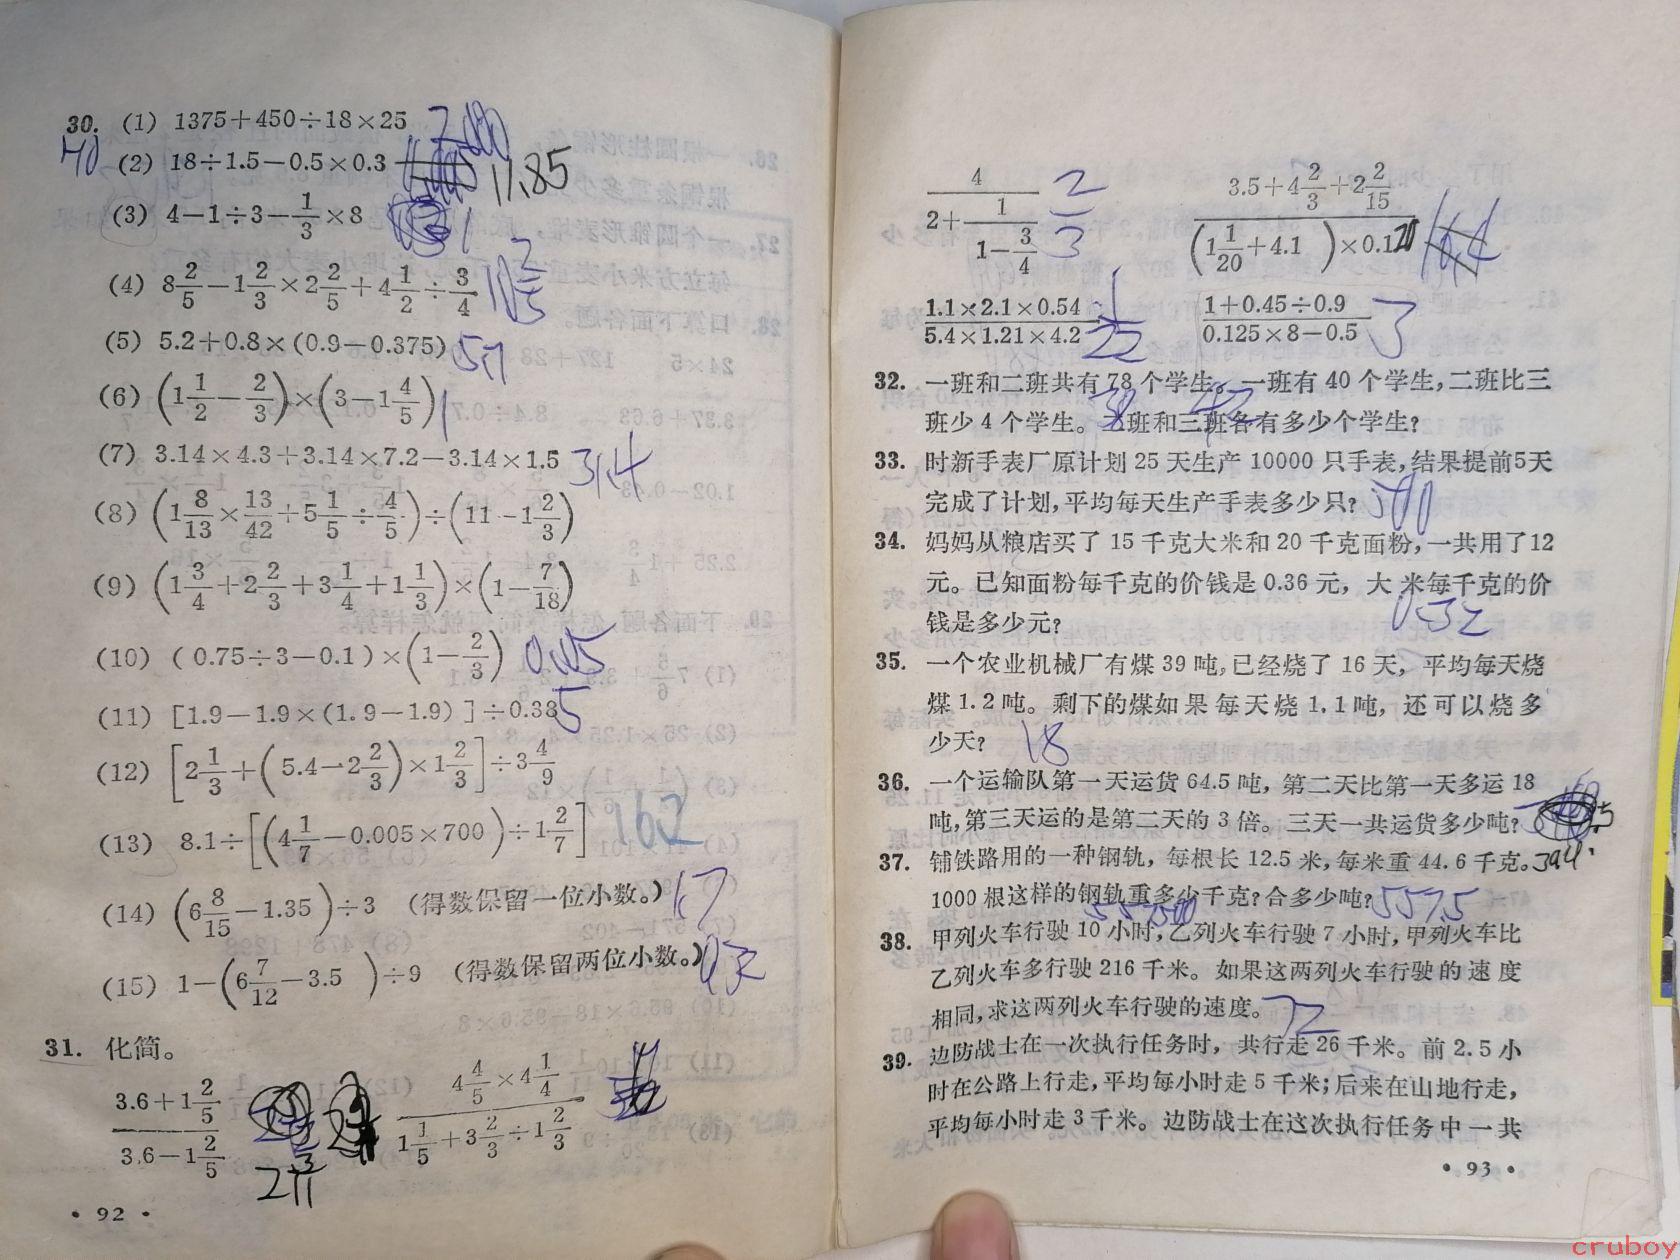 30. (1) 1375+450÷18×25 2000
40 (2) 18÷1.5-0.5×0.3 11.85
(3) 4-1÷3-1/3×8 1
(4) 8 2/5-1 2/3×2 2/5+4 1/2÷3/4 10 2/5
(5) 5.2+0.8×(0.9-0.375) 5.
(6) (1 1/2-2/3)×(3-1 4/5) 1
(7) 3.14×4.3+3.14×7.2-3.14×1.5 31.4
(8) (1 8/13×13/42+5 1/5÷4/5)÷(11-1 2/3)
(9) (1 3/4+2 2/3+3 1/4+1 1/3)×(1-7/18)
(10) (0.75÷3-0.1)×(1-2/3) 0.05
(11) [1.9-1.9×(1.9-1.9)]÷0.38 5
(12) [2 1/3+(5.4-2 2/3)×1 2/3]÷3 4/9
(13) 8.1÷[(4 1/7-0.005×700)÷1 2/7] 16.2
(14) (6 8/15-1.35)÷3 (得数保留一位小数。) 1.7
(15) 1-(6 7/12-3.5)÷9 (得数保留两位小数。)
31. 化简。
(3.6+1 2/5)/(3.6-1 2/5) 2 3/11
(4 4/5×4 1/4)/(1 1/5+3 2/3÷1 2/3)
· 92 ·
4/(2+1/(1-3/4)) 2/3
(3.5+4 2/3+2 2/15)/((1 1/20+4.1)×0.120)
(1.1×2.1×0.54)/(5.4×1.21×4.2) 1/22
(1+0.45÷0.9)/(0.125×8-0.5) 3
32. 一班和二班共有78个学生。一班有40个学生,二班比三
班少4个学生。二班和三班各有多少个学生? 38 42
33. 时新手表厂原计划25天生产10000只手表,结果提前5天
完成了计划,平均每天生产手表多少只? 500
34. 妈妈从粮店买了15千克大米和20千克面粉,一共用了12
元。已知面粉每千克的价钱是0.36元,大米每千克的价
钱是多少元? 0.32
35. 一个农业机械厂有煤39吨,已经烧了16天,平均每天烧
煤1.2吨。剩下的煤如果每天烧1.1吨,还可以烧多
少天? 18
36. 一个运输队第一天运货64.5吨,第二天比第一天多运18
吨,第三天运的是第二天的3倍。三天一共运货多少吨?
37. 铺铁路用的一种钢轨,每根长12.5米,每米重44.6千克。394.
1000根这样的钢轨重多少千克?合多少吨? 557500 557.5
38. 甲列火车行驶10小时,乙列火车行驶7小时,甲列火车比
乙列火车多行驶216千米。如果这两列火车行驶的速度
相同,求这两列火车行驶的速度。72
39. 边防战士在一次执行任务时,共行走26千米。前2.5小
时在公路上行走,平均每小时走5千米;后来在山地行走,
平均每小时走3千米。边防战士在这次执行任务中一共
· 93 ·
cruboy